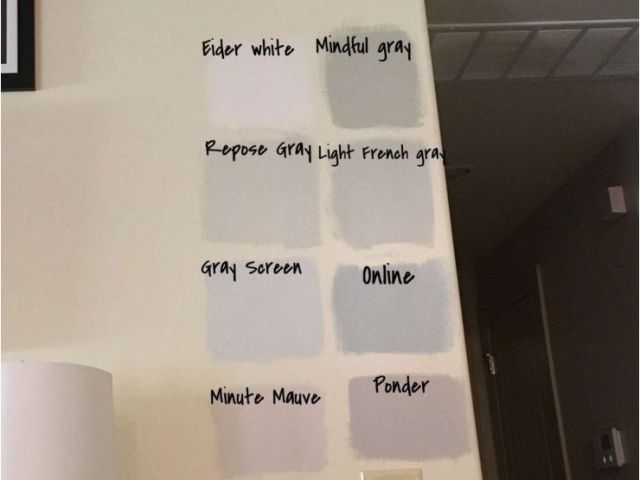 Eider white
Mindful gray
Repose Gray
Light French gray
Gray Screen
Online
Minute Mauve
Ponder